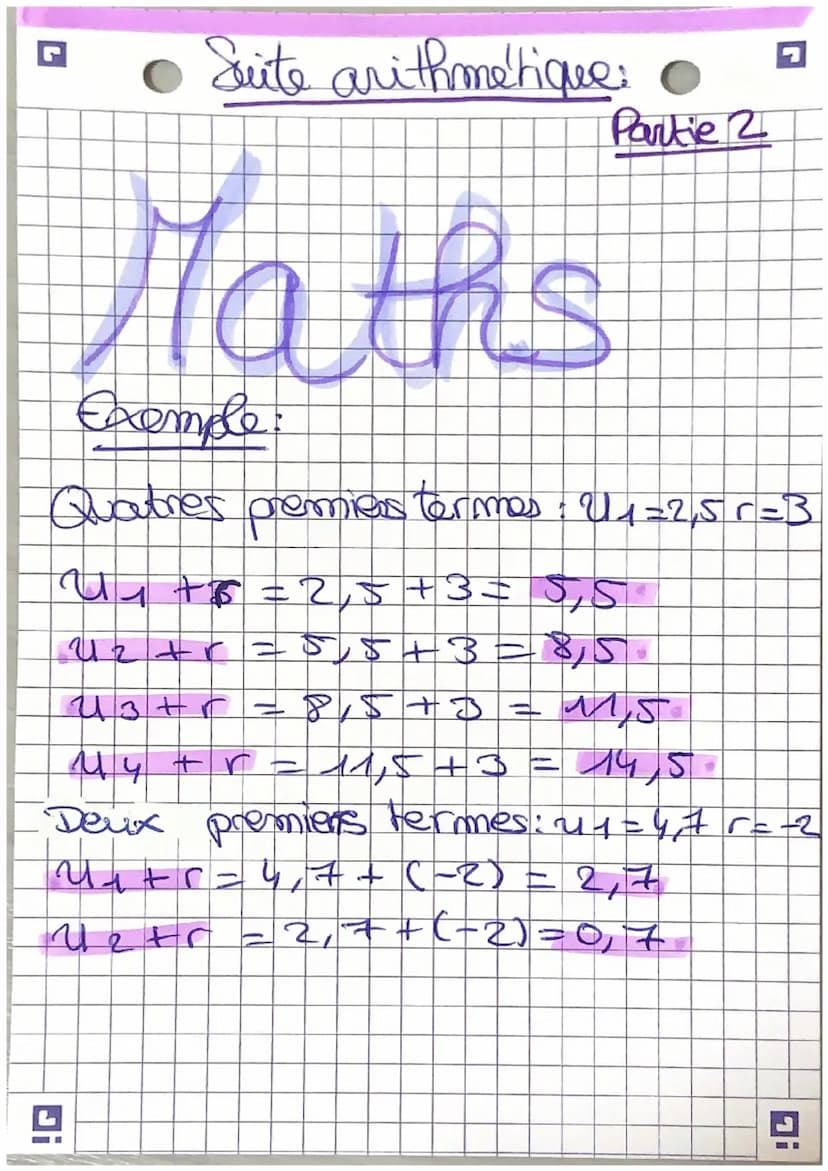 Suite arithmétique:
Partie 2
Maths
Exemple:
Quatres premiers termes : U1=2,5 r=3
U1 +r = 2,5 +3= 5,5.
U2 +r = 5,5+3 = 8,5.
U3+r = 8,5 +3 = 11,5.
U4 + r = 11,5+3 = 14,5.
Deux premiers termes: U1=4,7 r=-2
U1+r = 4,7+ (-2) = 2,7
U2+r = 2,7+(-2)=0,7.